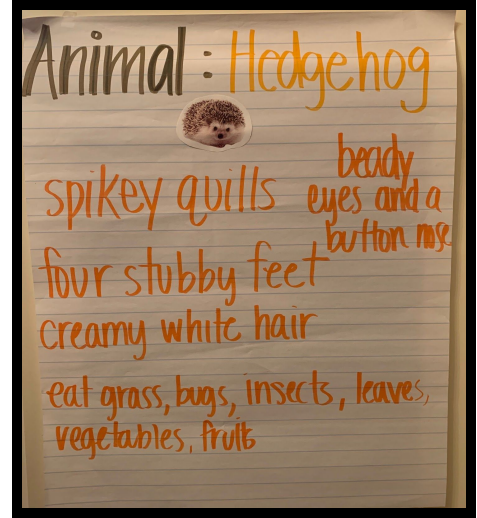 Animal: Hedgehog
spikey quills
beady
eyes and a
button nose
four stubby feet
creamy white hair
eat grass, bugs, insects, leaves,
vegetables, fruit